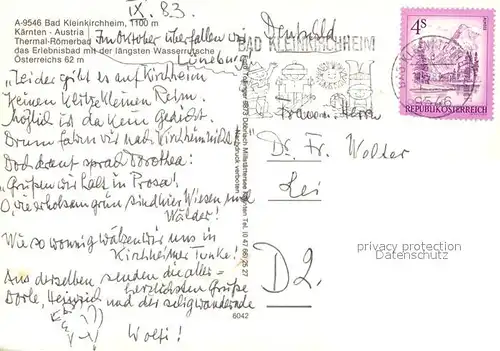 IX. 83.
A-9546 Bad Kleinkirchheim, 1100 m
Kärnten - Austria
Thermal-Römerbad
das Erlebnisbad mit der längsten Wasserrutsche
Österreichs 62 m
Im Oktober überfallen wir
Lüneburg
"Leider gibt es auf Kirchheim
keinen klitzekleinen Reim.
Möglich ist da kein Gedicht.
Drum fahrn wir nach Kirchheim nicht"
Doch drauf sprach Dorothea:
"Grüßen wir halt in Prosa!
O, wie erholsam grün sind hier Wiesen und
Wälder!
Wie so wonnig wälzen wir uns in
Kirchheimer Tunke!
Aus derselben senden die aller-
herzlichsten Grüße
Dorle, Heinrich und der selig wandernde
Wolfi!
Verlag
8873 Döbriach Millstättersee Kärnten Tel. 10 47 66 25 27
Nachdruck verboten
6042
BAD KLEINKIRCHHEIM
4S
REPUBLIK ÖSTERREICH
Frau und Herrn
Dr. Fr. Wolder
D2.
privacy protection
Datenschutz